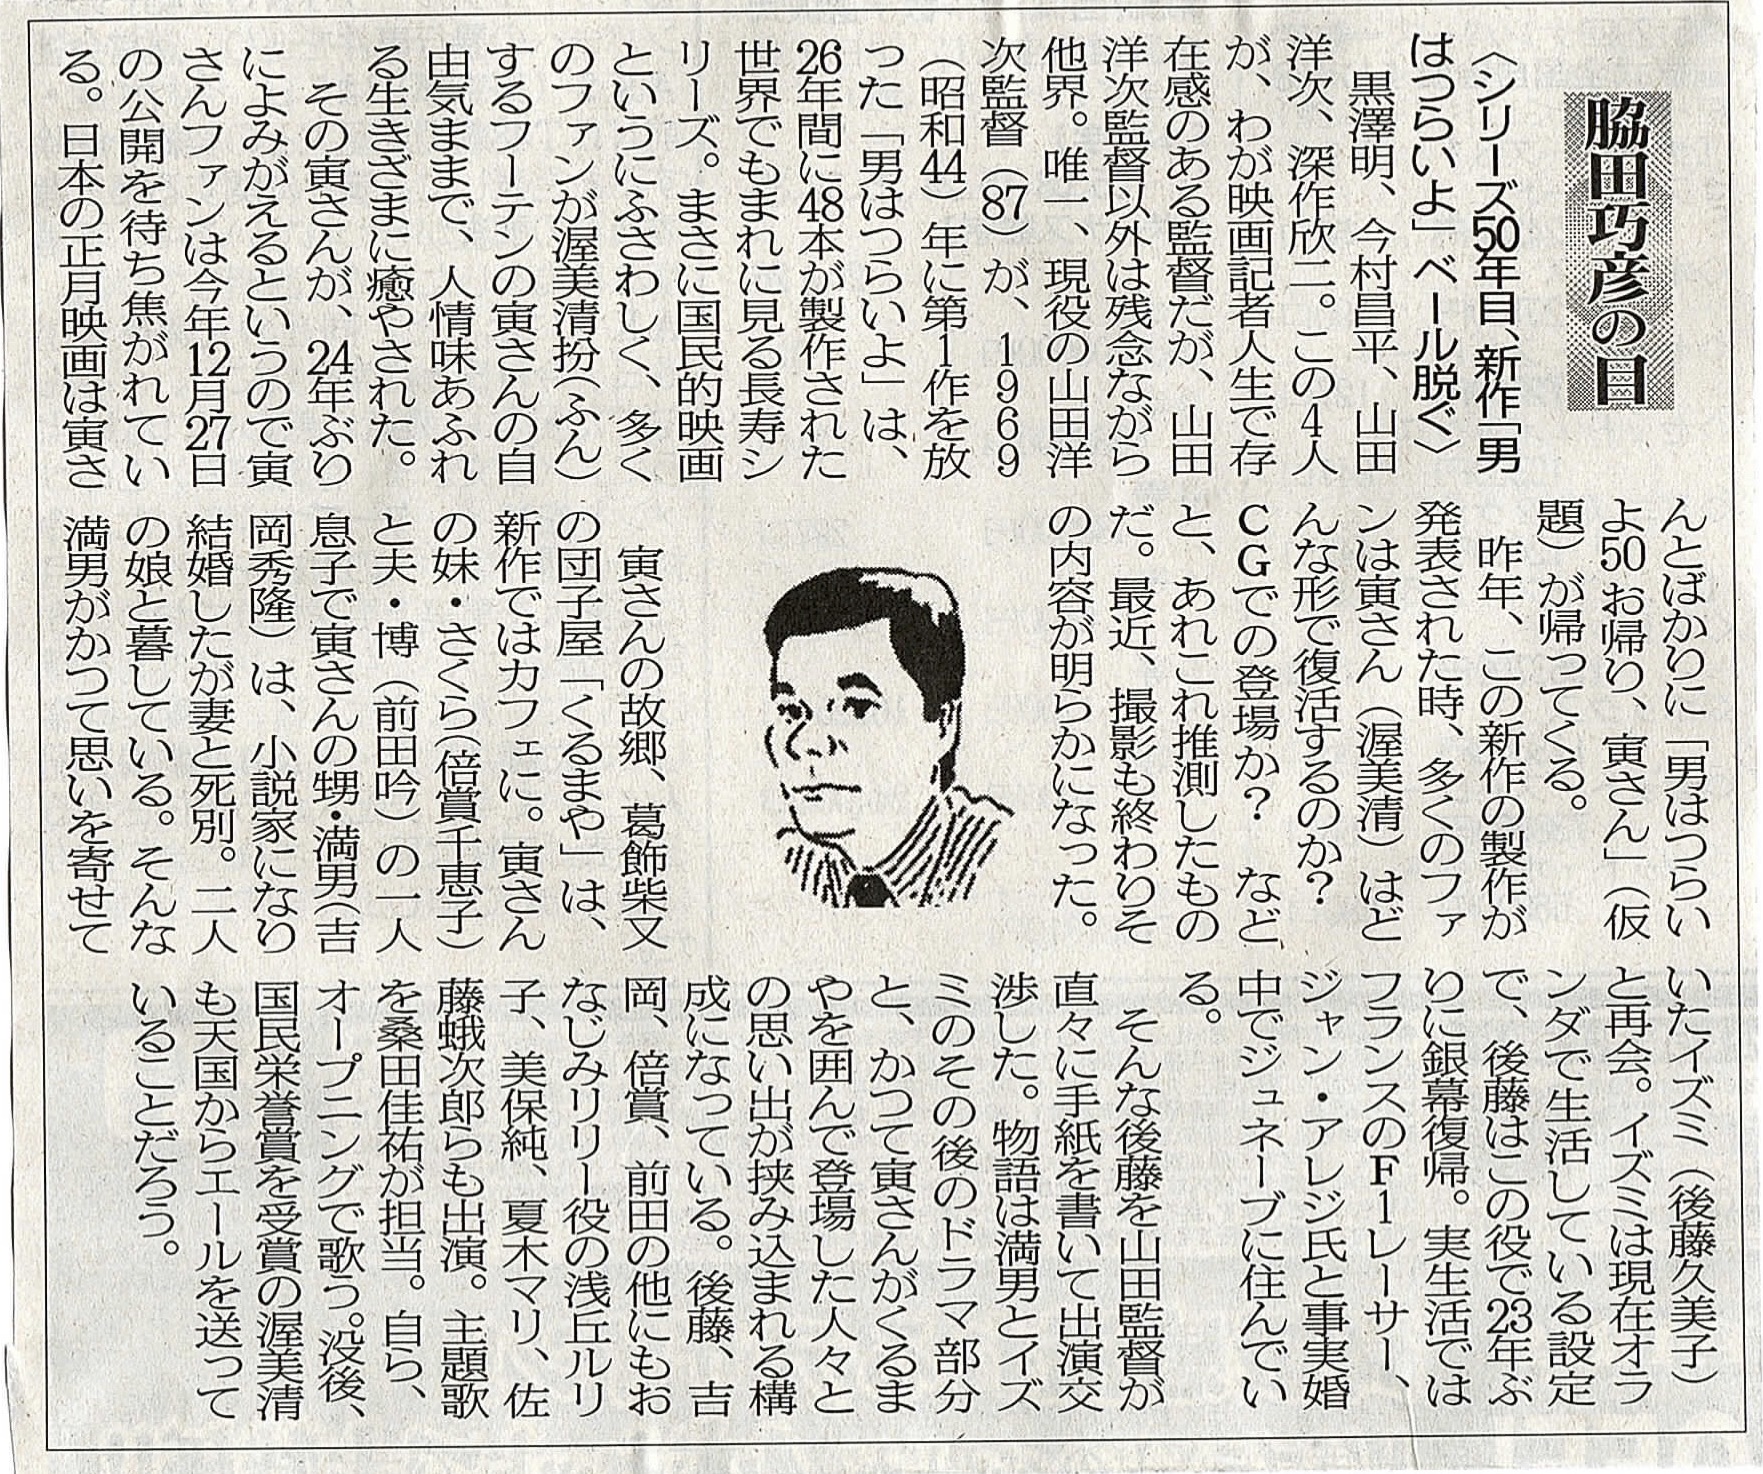 脇田巧彦の目
〈シリーズ50年目、新作「男
はつらいよ」ベール脱ぐ〉
黒澤明、今村昌平、山田
洋次、深作欣二。この4人
が、わが映画記者人生で存
在感のある監督だが、山田
洋次監督以外は残念ながら
他界。唯一、現役の山田洋
次監督(87)が、1969
(昭和44)年に第1作を放
った「男はつらいよ」は、
26年間に48本が製作された
世界でもまれに見る長寿シ
リーズ。まさに国民的映画
というにふさわしく、多く
のファンが渥美清扮(ふん)
するフーテンの寅さんの自
由気ままで、人情味あふれ
る生きざまに癒やされた。
その寅さんが、24年ぶり
によみがえるというので寅
さんファンは今年12月27日
の公開を待ち焦がれてい
る。日本の正月映画は寅さ
んとばかりに「男はつらい
よ50 お帰り、寅さん」(仮
題)が帰ってくる。
昨年、この新作の製作が
発表された時、多くのファ
ンは寅さん(渥美清)はど
んな形で復活するのか?
CGでの登場か? など
と、あれこれ推測したもの
だ。最近、撮影も終わりそ
の内容が明らかになった。
寅さんの故郷、葛飾柴又
の団子屋「くるまや」は、
新作ではカフェに。寅さん
の妹・さくら(倍賞千恵子)
と夫・博(前田吟)の一人
息子で寅さんの甥・満男(吉
岡秀隆)は、小説家になり
結婚したが妻と死別。二人
の娘と暮している。そんな
満男がかつて思いを寄せて
いたイズミ(後藤久美子)
と再会。イズミは現在オラ
ンダで生活している設定
で、後藤はこの役で23年ぶ
りに銀幕復帰。実生活では
フランスのF1レーサー、
ジャン・アレジ氏と事実婚
中でジュネーブに住んでい
る。
そんな後藤を山田監督が
直々に手紙を書いて出演交
渉した。物語は満男とイズ
ミのその後のドラマ部分
と、かつて寅さんがくるま
やを囲んで登場した人々と
の思い出が挟み込まれる構
成になっている。後藤、吉
岡、倍賞、前田の他にもお
なじみリリー役の浅丘ルリ
子、美保純、夏木マリ、佐
藤蛾次郎らも出演。主題歌
を桑田佳祐が担当。自ら、
オープニングで歌う。没後、
国民栄誉賞を受賞の渥美清
も天国からエールを送って
いることだろう。